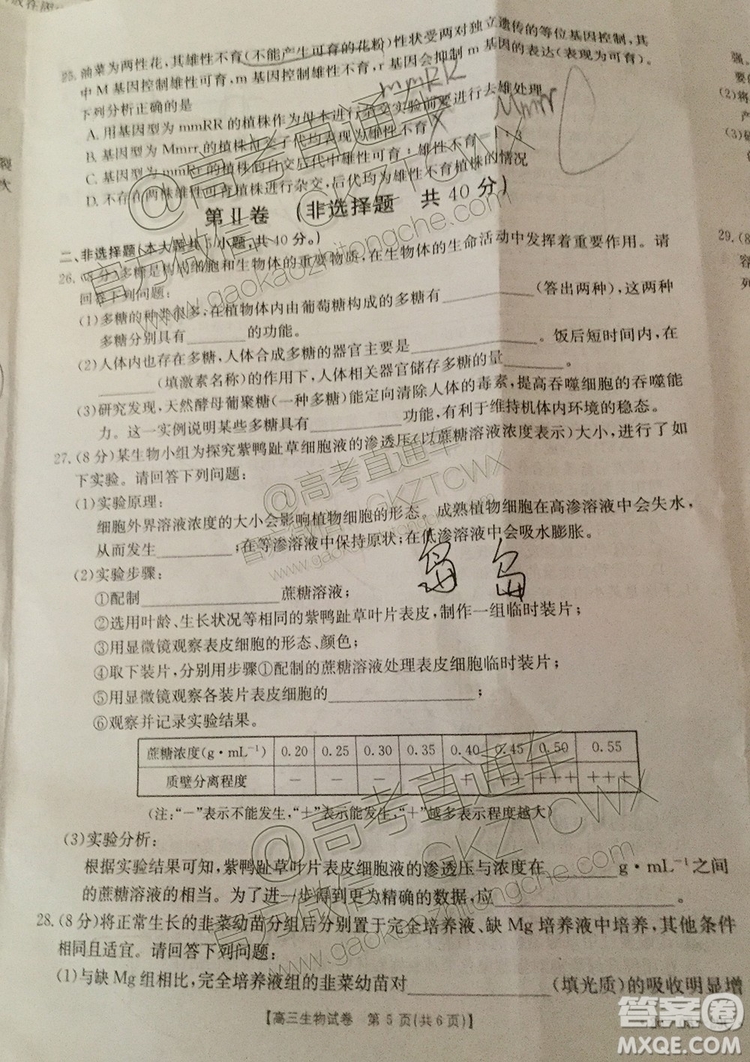 25. 油菜为两性花，其雄性不育(不能产生可育的花粉)性状受两对独立遗传的等位基因控制，其
中M基因控制雄性可育，m基因控制雄性不育，r基因会抑制m基因的表达(表现为可育)。
下列分析正确的是
mmRR
Mmrr
A. 用基因型为mmRR的植株作为母本进行杂交实验前要进行去雄处理
B. 基因型为Mmrr的植株自交子代均表现为雄性不育
C. 基因型为mmRr的植株自交后代中雄性可育：雄性不育＝1：3
D. 不存在两雄性可育植株进行杂交，后代均为雄性不育植株的情况
第Ⅱ卷 (非选择题 共40分)
二、非选择题(本大题共5小题，共40分)
26. (8分)多糖是构成细胞和生物体的重要物质，在生物体的生命活动中发挥着重要作用。请
回答下列问题：
(1)多糖的种类很多，在植物体内由葡萄糖构成的多糖有________(答出两种)，这两种
多糖分别具有________的功能。
(2)人体内也存在多糖，人体合成多糖的器官主要是________。饭后短时间内，在
________(填激素名称)的作用下，人体相关器官储存多糖的量________。
(3)研究发现，天然酵母葡聚糖(一种多糖)能定向清除人体的毒素，提高吞噬细胞的吞噬能
力。这一实例说明某些多糖具有________功能，有利于维持机体内环境的稳态。
27. (8分)某生物小组为探究紫鸭趾草细胞液的渗透压(以蔗糖溶液浓度表示)大小，进行了如
下实验。请回答下列问题：
(1)实验原理：
细胞外界溶液浓度的大小会影响植物细胞的形态。成熟植物细胞在高渗溶液中会失水，
从而发生________；在等渗溶液中保持原状；在低渗溶液中会吸水膨胀。
(2)实验步骤：
①配制________蔗糖溶液；
②选用叶龄、生长状况等相同的紫鸭趾草叶片表皮，制作一组临时装片；
③用显微镜观察表皮细胞的形态、颜色；
④取下装片，分别用步骤①配制的蔗糖溶液处理表皮细胞临时装片；
⑤用显微镜观察各装片表皮细胞的________；
⑥观察并记录实验结果。
蔗糖浓度(g·mL⁻¹) 0.20 0.25 0.30 0.35 0.40 0.45 0.50 0.55
质壁分离程度 － － － － ＋ ＋＋ ＋＋＋ ＋＋＋
(注：“－”表示不能发生，“＋”表示能发生，“＋”越多表示程度越大)
(3)实验分析：
根据实验结果可知，紫鸭趾草叶片表皮细胞液的渗透压与浓度在________g·mL⁻¹之间
的蔗糖溶液的相当。为了进一步得到更为精确的数据，应________。
28. (8分)将正常生长的韭菜幼苗分组后分别置于完全培养液、缺Mg培养液中培养，其他条件
相同且适宜。请回答下列问题：
(1)与缺Mg组相比，完全培养液组的韭菜幼苗对________(填光质)的吸收明显增
【高三生物试卷 第5页(共6页)】
29. (8
@高考直通车
GKZTCWX
www.gaokaozhitongche.com
答案圈
MXQE.COM